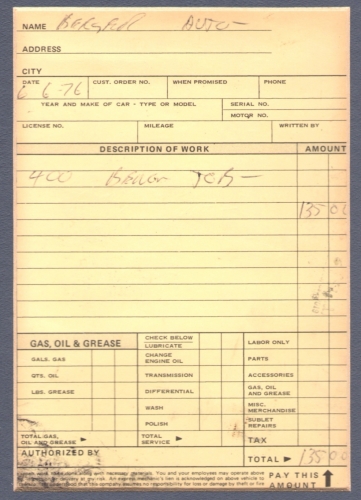 NAME AUTO-
ADDRESS
CITY
DATE CUST. ORDER NO. WHEN PROMISED PHONE
6-76
YEAR AND MAKE OF CAR - TYPE OR MODEL SERIAL NO.
MOTOR NO.
LICENSE NO. MILEAGE WRITTEN BY
DESCRIPTION OF WORK AMOUNT
400
135 00
GAS, OIL & GREASE CHECK BELOW LABOR ONLY
LUBRICATE
GALS. GAS CHANGE ENGINE OIL PARTS
QTS. OIL TRANSMISSION ACCESSORIES
LBS. GREASE DIFFERENTIAL GAS, OIL AND GREASE
WASH MISC. MERCHANDISE
POLISH SUBLET REPAIRS
TOTAL GAS, OIL AND GREASE ► TOTAL SERVICE ► TAX
AUTHORIZED BY TOTAL ► 135 00
with necessary materials. You and your employees may operate above
for inspection or delivery at my risk. An express mechanic's lien is acknowledged on above vehicle to
that this company assumes no responsibility for loss or damage by theft or fire
PAY THIS AMOUNT ↑